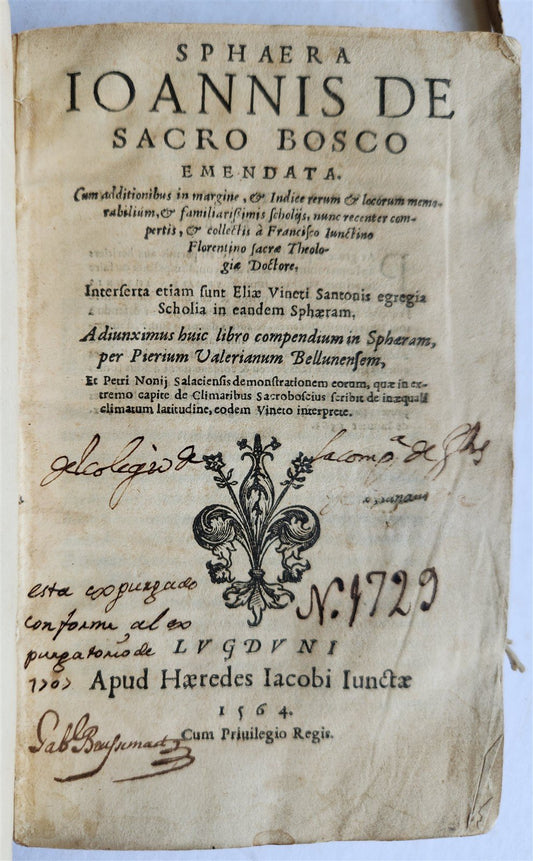 SPHAERA
IOANNIS DE
SACRO BOSCO
EMENDATA.
Cum additionibus in margine, & Indice rerum & locorum memo-
rabilium, & familiarissimis scholijs, nunc recenter com-
pertis, & collectis à Francisco Iunctino
Florentino sacræ Theolo-
giæ Doctore.
Interserta etiam sunt Eliæ Vineti Santonis egregia
Scholia in eandem Sphæram.
Adiunximus huic libro compendium in Sphæram,
per Pierium Valerianum Bellunensem,
Et Petri Nonij Salaciensis demonstrationem eorum, quæ in ex-
tremo capite de Climatibus Sacroboscius scribit de inæquali
climatum latitudine, eodem Vineto interprete.
del colegio de la comp.ª de Jhs
N. 1729
esta expurgado
conforme al ex
purgatorio de
1707
LVGDVNI
Apud Hæredes Iacobi Iunctæ
1564.
Cum Priuilegio Regis.
Gab.